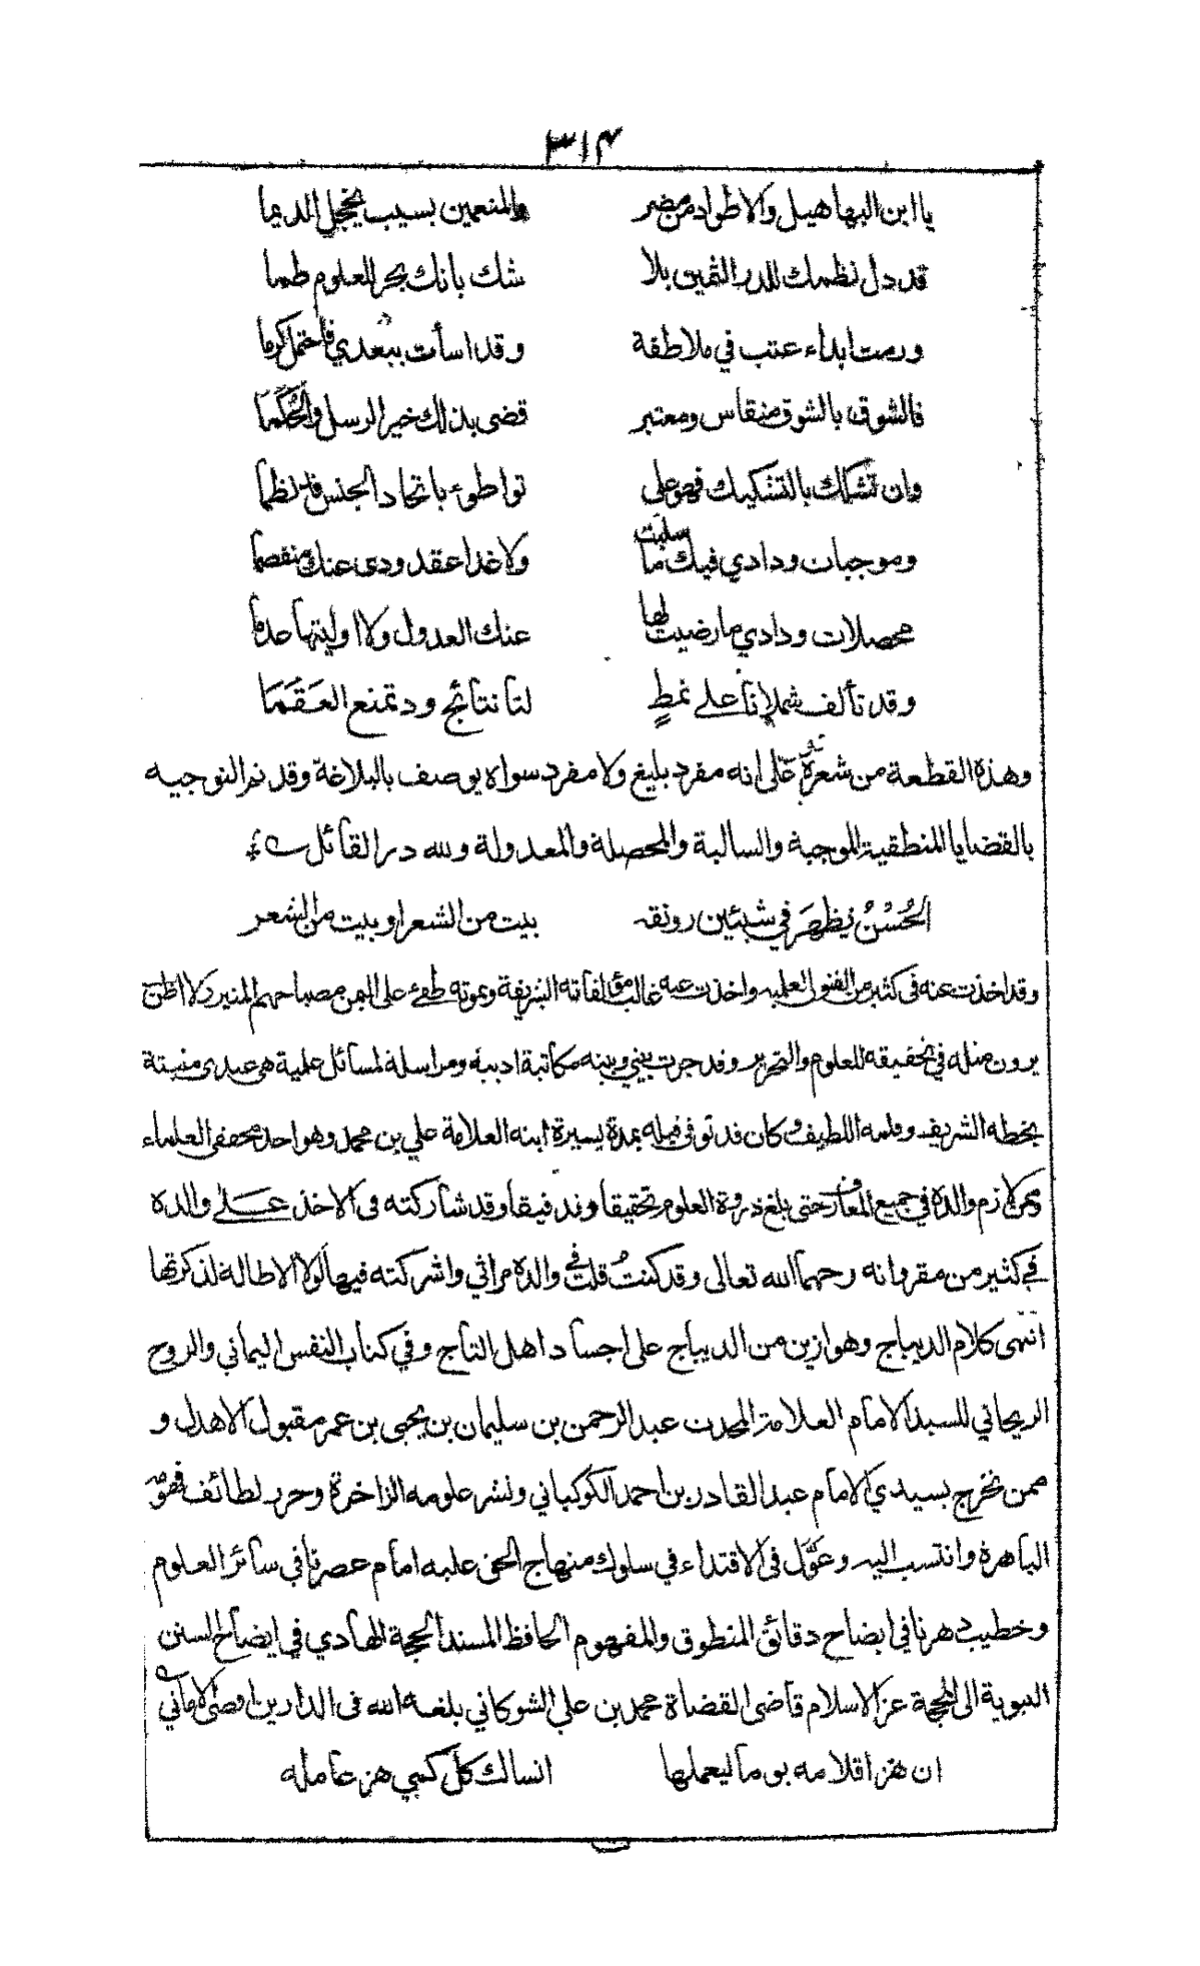 ٣١٤
يا ابن البهاهيل والاطواد من مضر والمنعمين بسيب يخجل الديما
قد دل نظمك للدر الثمين بلا شك بانك بحر للعلوم طما
ورمت ابداء عتب في ملاطفة وقد اسأت ببعدي فاحتمل كرما
فالشوق بالشوق منقاس ومعتبر قضى بذلك خير الرسل والحُكَما
وان تشكك بالتشكيك فهو على تواطوء باتحاد الجنس
وموجبات ودادي فيك ما سلبت ولا غدا عقد ودى عنك منفصما
محصلات ودادي ما رضيت لها عنك العدول ولا اوليتها عدما
وقد تألف شملانا على نمطٍ لنا نتائج ود تمنع العَقَمَا
وهذه القطعة من شعره على انه مفرد بليغ ولا مفرد سواه يوصف بالبلاغة وقد تم التوجيه
بالقضايا المنطقية الموجبة والسالبة والمحصلة والمعدولة ولله در القائل
الحُسْنُ يَظهَر في شيئين رونقه بيت من الشعر او بيت من الشعر
وقد اخذت عنه في كثير من الفنون العلميه واخذت عنه غالب مؤلفاته الشريفة وبموته طفئ على اليمن مصباحهم المنير ولا اظن
يرون مثله في تحقيقه للعلوم والتحرير وقد جرت بيني وبينه مكاتبة ادبية ومراسلة لمسائل علمية هي عندى مثبتة
بخطه الشريف وقلمه اللطيف وكان قد توفى قبله بمدة يسيرة ابنه العلامة علي بن محمد وهو احد محققى العلماء
وممن لازم والده في جميع المعارف حتى بلغ ذروة العلوم تحقيقا وتدقيقا وقد شاركته في الاخذ على والده
في كثير من مقروانه رحمهما الله تعالى وقد كنتُ قلت في والده مراثي واشركته فيها لولا الاطالة لذكرتها
انتهى كلام الديباج وهو ازين من الديباج على اجساد اهل التاج وفي كتاب النفس اليماني والروح
الريحاني للسيد الامام العلامة المحدث عبد الرحمن بن سليمان بن يحيى بن عمر مقبول الاهدل و
ممن تخرج بسيدي الامام عبد القادر بن احمد الكوكباني ونشر علومه الزاخرة وحرر لطائف
الباهرة وانتسب اليه وعَوَّل في الاقتداء في سلوك منهاج الحق عليه امام عصرنا في سائر العلوم
وخطيب دهرنا في ايضاح دقائق المنطوق والمفهوم الحافظ المسند الحجة الهادي في ايضاح السنن
النبوية الى المحجة عز الاسلام قاضى القضاة محمد بن علي الشوكاني بلغه الله في الدارين اقصى الاماني
ان هز اقلامه يوما ليعملها انساك كل كمي هز عامله